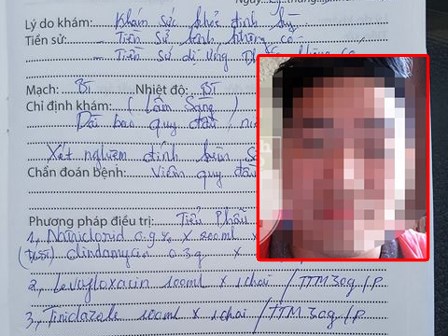 Ngày...tháng
Lý do khám: Khám sức khỏe định kỳ
Tiền sử: - Tiền sử bệnh không có
- Tiền sử dị ứng
Mạch: BT Nhiệt độ: BT
Chỉ định khám: (Lâm Sàng)
Dài bao quy đầu
Xét nghiệm định
Chẩn đoán bệnh: Viêm quy đầu
Phương pháp điều trị: Tiểu Phẫu
1, Natriclorid 0.9% x 200ml
Clindamycin 0.3g x
2, Levofloxacin 100ml x 1 chai / TTM 30g/p
3, Tinidazole 100ml x 1 chai / TTM 30g/p